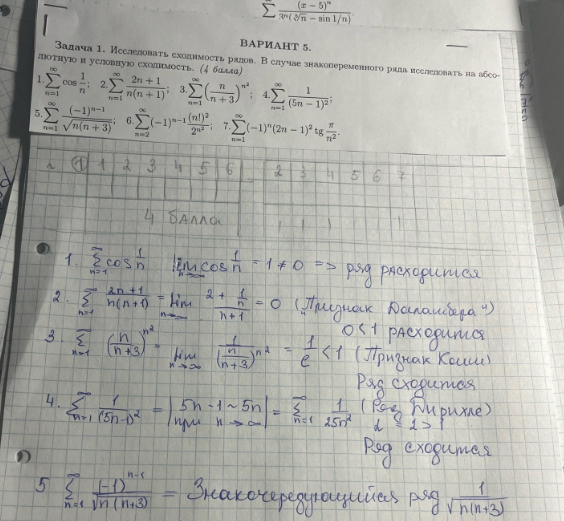 ∑ (x − 5)ⁿ / 3ⁿ(∛n − sin 1/n)
ВАРИАНТ 5.
Задача 1. Исследовать сходимость рядов. В случае знакопеременного ряда исследовать на абсо-
лютную и условную сходимость. (4 балла)
1. ∑_{n=1}^{∞} cos 1/n; 2. ∑_{n=1}^{∞} (2n + 1)/(n(n + 1)); 3. ∑_{n=1}^{∞} (n/(n + 3))^{n²}; 4. ∑_{n=1}^{∞} 1/(5n − 1)²;
5. ∑_{n=1}^{∞} (−1)^{n−1}/√(n(n + 3)); 6. ∑_{n=2}^{∞} (−1)^{n−1} (n!)²/2^{n²}; 7. ∑_{n=1}^{∞} (−1)ⁿ(2n − 1)² tg π/n².
1 1 2 3 4 5 6 2 3 4 5 6 7
4 БАЛЛА
1. ∑_{n=1}^{∞} cos 1/n lim_{n→∞} cos 1/n = 1 ≠ 0 => ряд расходится
2. ∑_{n=1}^{∞} (2n+1)/(n(n+1)) = lim_{n→∞} (2 + 1/n)/(n+1) = 0 ("Признак Даламбера")
0<1 расходится
3. ∑_{n=1}^{∞} (n/(n+3))^{n²} = lim_{n→∞} = 1/e < 1 (Признак Коши)
Ряд сходится
4. ∑_{n=1}^{∞} 1/(5n-1)² = |5n-1 ~ 5n при n→∞| = ∑_{n=1}^{∞} 1/25n² (Ряд Дирихле)
α = 2 > 1
Ряд сходится
5 ∑_{n=1}^{∞} (-1)^{n-1}/√(n(n+3)) = Знакочередующийся ряд 1/√(n(n+3))